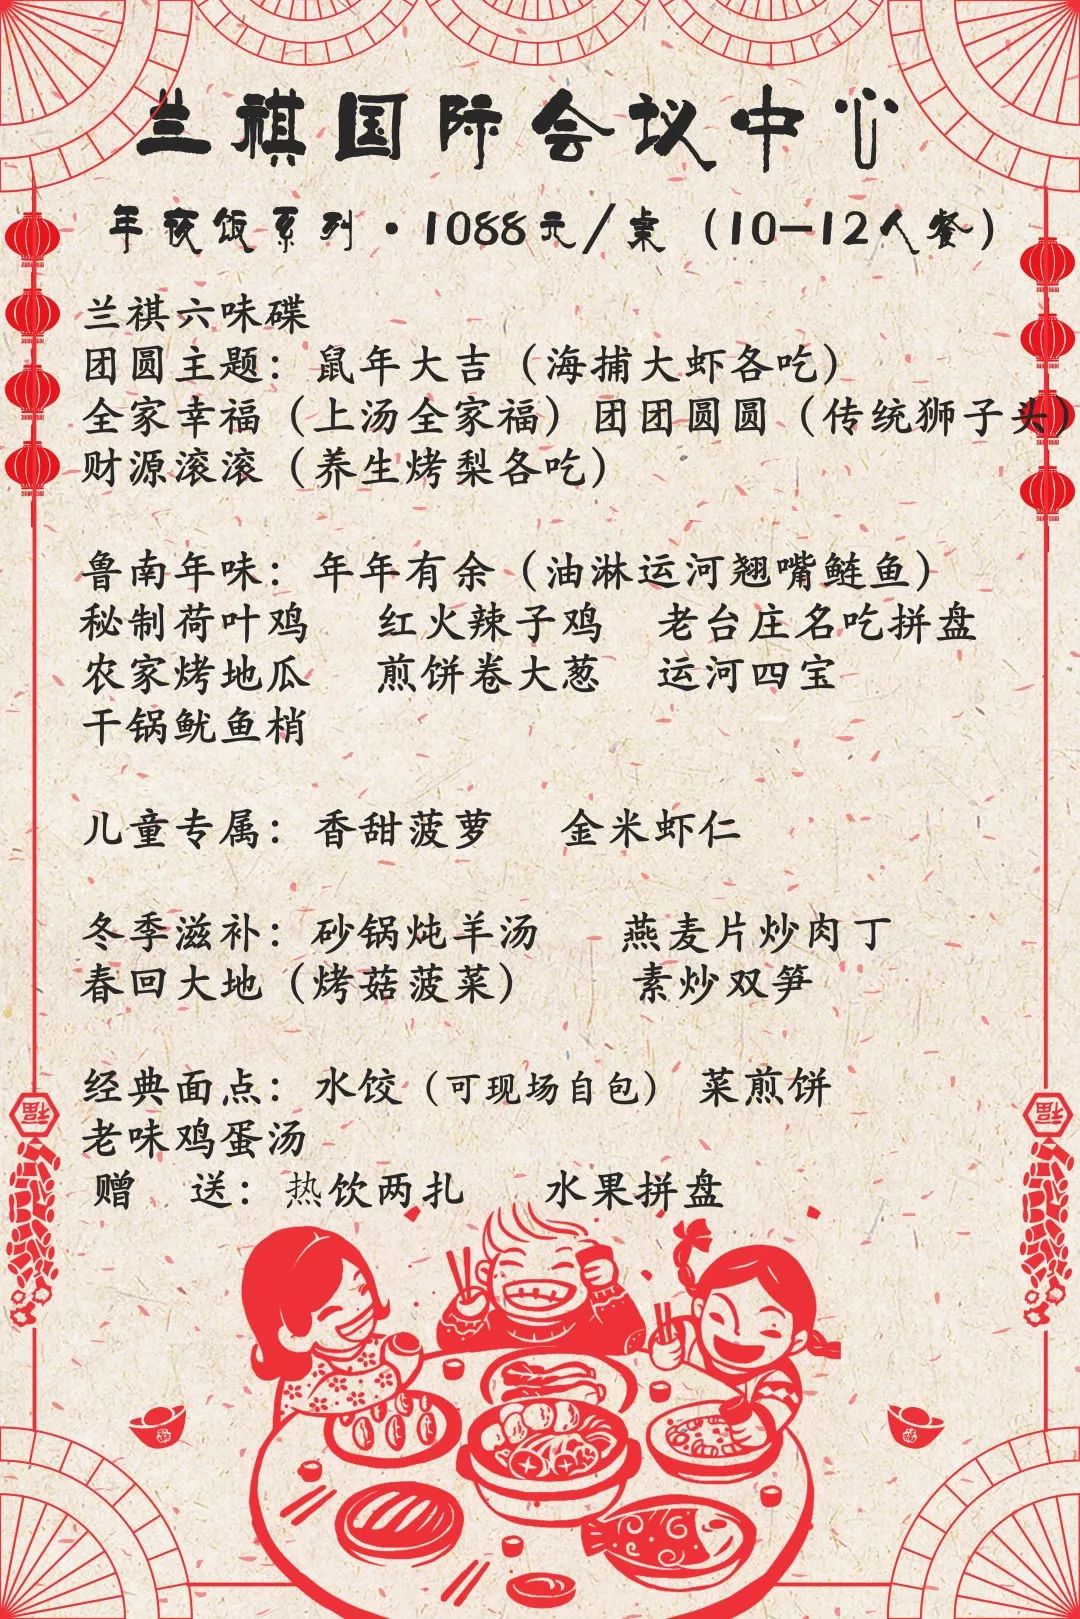 兰祺国际会议中心
年夜饭系列·1088元/桌（10-12人餐）
兰祺六味碟
团圆主题：鼠年大吉（海捕大虾各吃）
全家幸福（上汤全家福）团团圆圆（传统狮子头）
财源滚滚（养生烤梨各吃）
鲁南年味：年年有余（油淋运河翘嘴鲢鱼）
秘制荷叶鸡 红火辣子鸡 老台庄名吃拼盘
农家烤地瓜 煎饼卷大葱 运河四宝
干锅鱿鱼梢
儿童专属：香甜菠萝 金米虾仁
冬季滋补：砂锅炖羊汤 燕麦片炒肉丁
春回大地（烤菇菠菜） 素炒双笋
经典面点：水饺（可现场自包） 菜煎饼
老味鸡蛋汤
赠 送：热饮两扎 水果拼盘
福
福